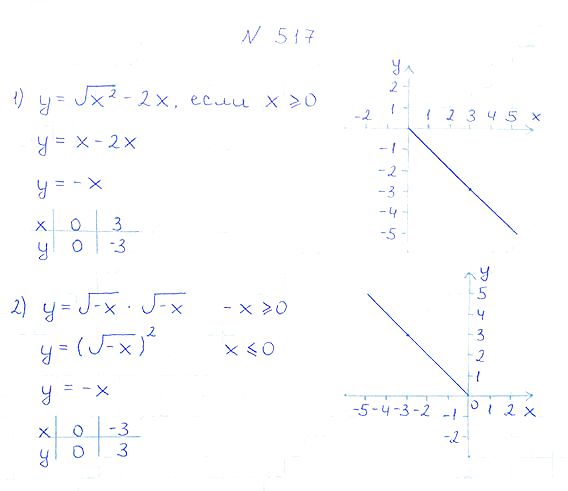 N 517
1) y = √x² - 2x, если x ≥ 0
y = x - 2x
y = -x
x | 0 | 3
y | 0 | -3
y
2
1
-2 1 2 3 4 5 x
-1
-2
-3
-4
-5
2) y = √-x · √-x   -x ≥ 0
y = (√-x)²   x ≤ 0
y = -x
x | 0 | -3
y | 0 | 3
y
5
4
3
2
1
-5 -4 -3 -2 -1 0 1 2 x
-2